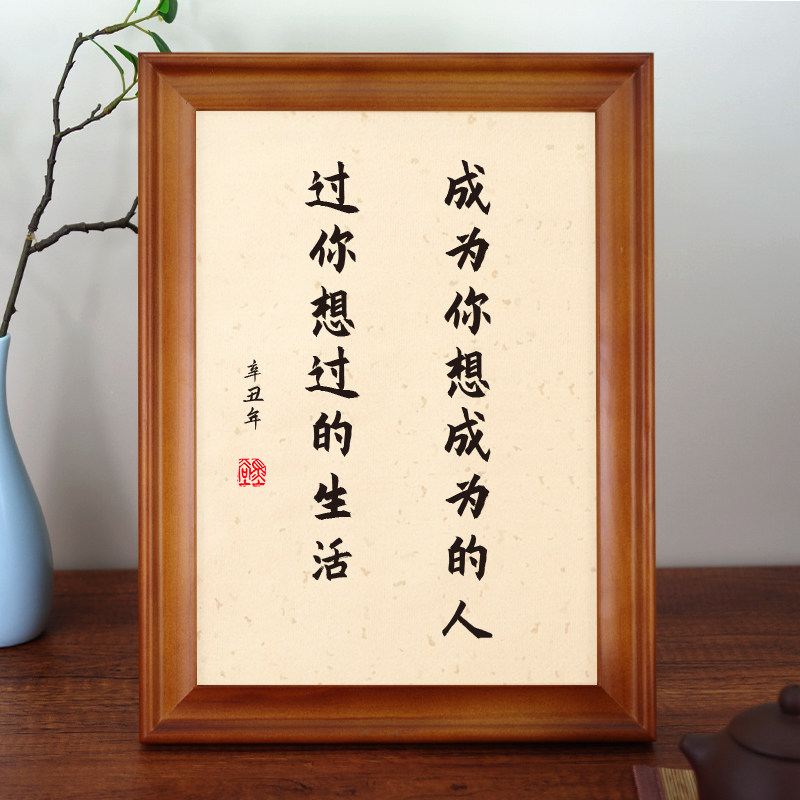 成为你想成为的人
过你想过的生活
辛丑年